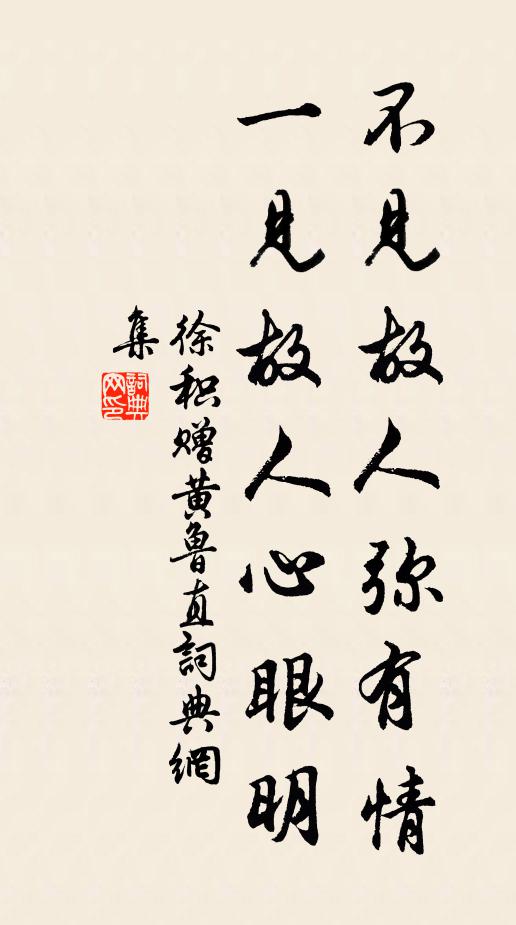 不見故人弥有情
一見故人心眼明
徐积贈黄魯直詞典網
集
詞典
网印